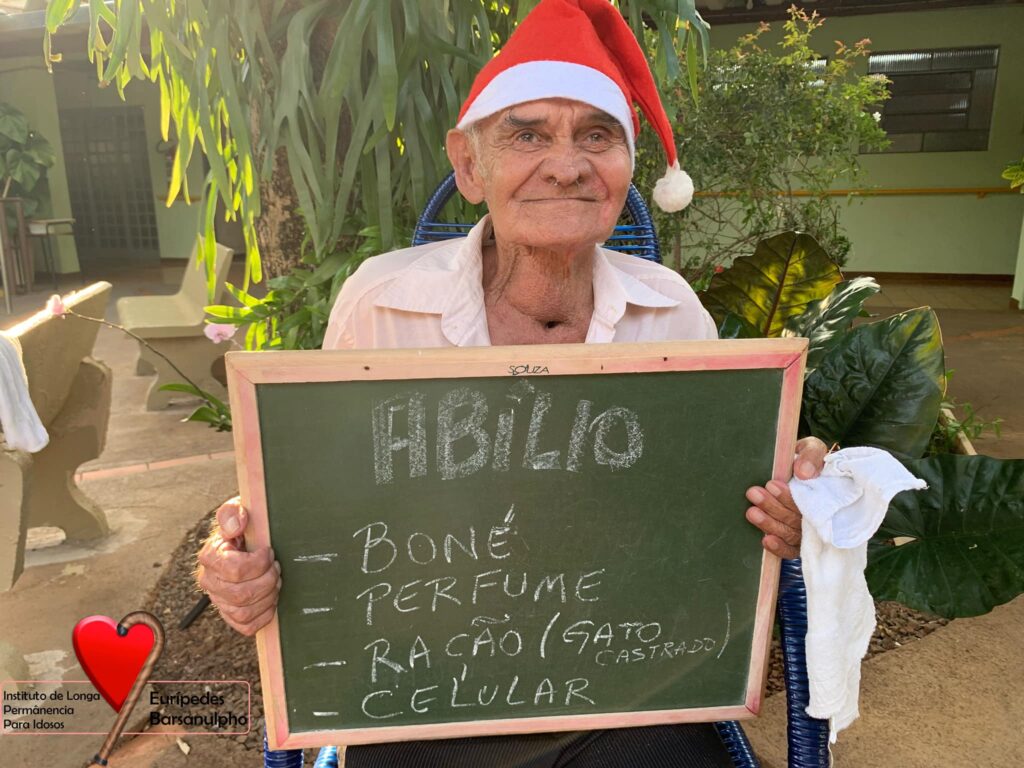 SOUZA
ABÍLIO
- BONÉ
- PERFUME
- RAÇÃO (GATO CASTRADO)
- CELULAR
Instituto de Longa
Permânencia
Para Idosos
Eurípedes
Barsanulpho